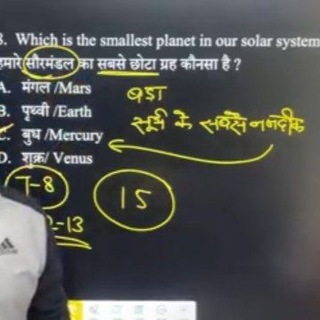 8. Which is the smallest planet in our solar system
हमारे सौरमंडल का सबसे छोटा ग्रह कौनसा है ?
A. मंगल /Mars
बड़ा
B. पृथ्वी /Earth
सूर्य के सबसे नजदीक
C. बुध /Mercury
D. शुक्र/ Venus
T-8
15
-13
adidas